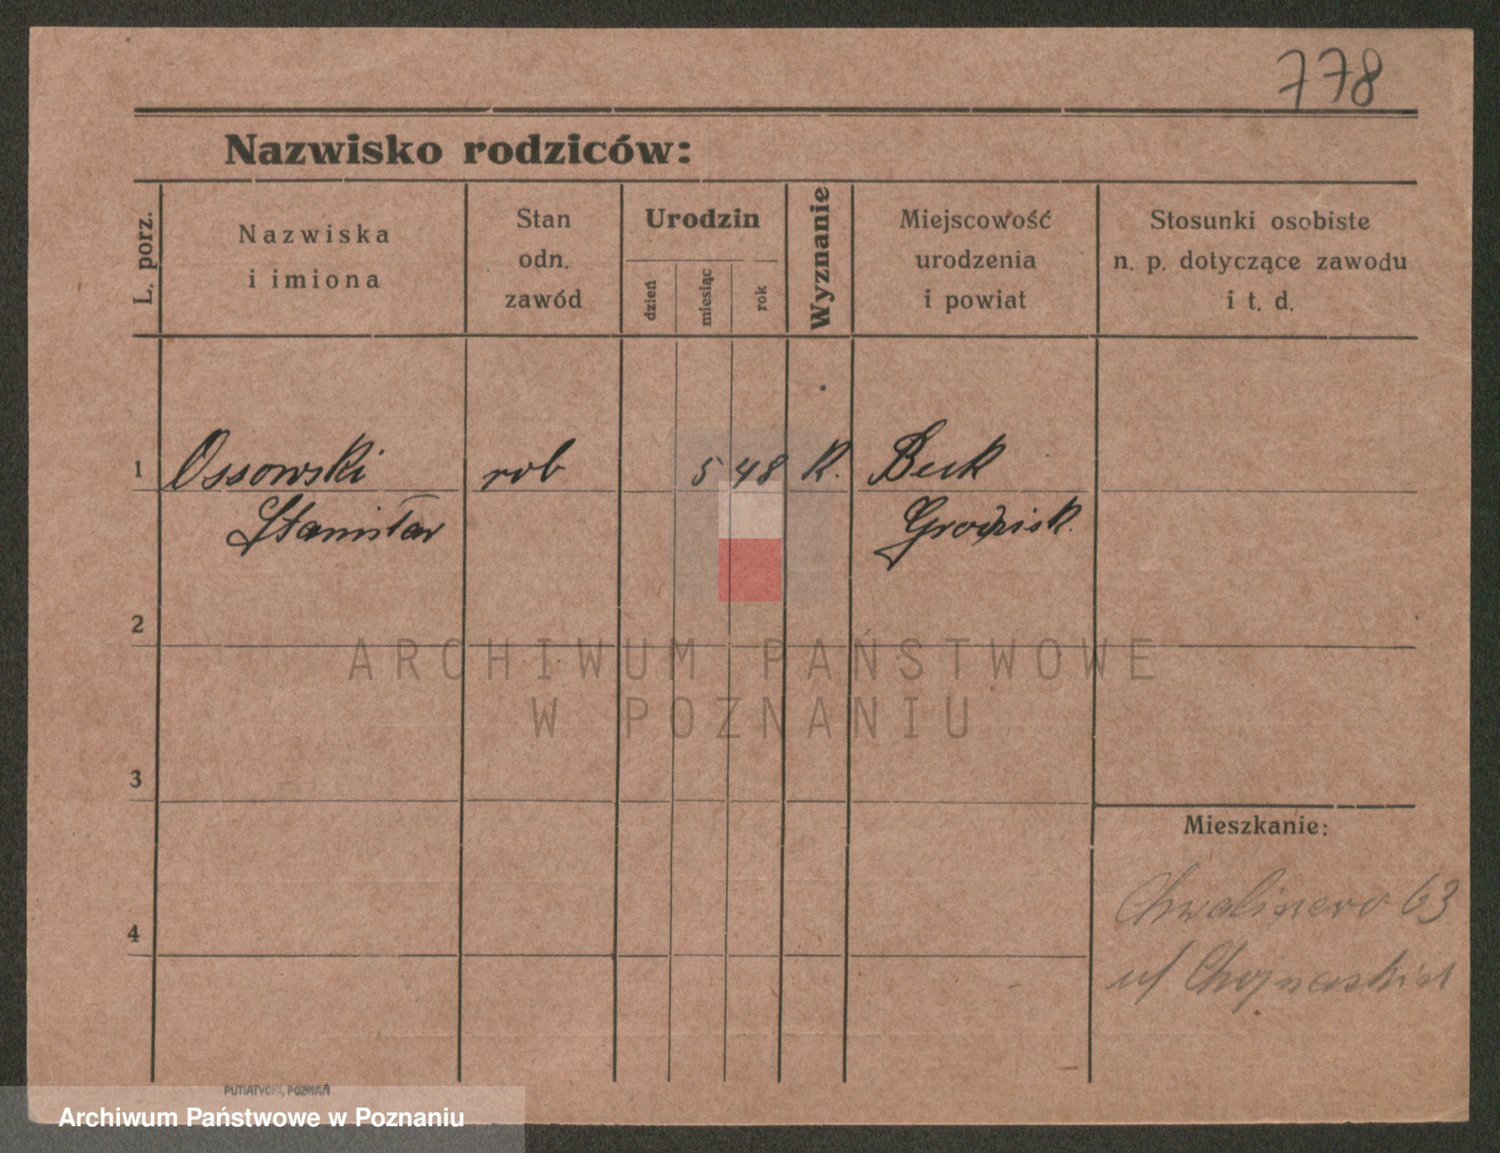 778
Nazwisko rodziców:
L. porz.
Nazwiska
i imiona
Stan
odn.
zawód
Urodzin
dzień
miesiąc
rok
Wyznanie
Miejscowość
urodzenia
i powiat
Stosunki osobiste
n. p. dotyczące zawodu
i t. d.
1 Ossowski rob 5 48 K.
Stanisław Grodzisk.
2
3
4
Mieszkanie:
63
ARCHIWUM PAŃSTWOWE
W POZNANIU
PUTIATYCKI, POZNAŃ
Archiwum Państwowe w Poznaniu